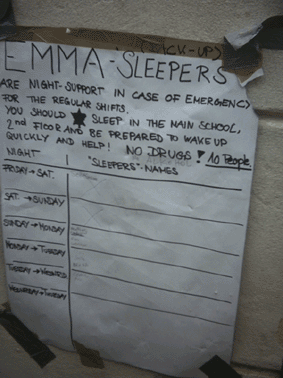 (BACK-UP)
EMMA-SLEEPERS
ARE NIGHT-SUPPORT IN CASE OF EMERGENCY
FOR THE REGULAR SHIFTS.
YOU SHOULD ★ SLEEP IN THE MAIN SCHOOL,
2nd FLOOR AND BE PREPARED TO WAKE UP
QUICKLY AND HELP! NO DRUGS! 10 People
NIGHT "SLEEPERS"-NAMES
FRIDAY → SAT.
SAT. → SUNDAY
SUNDAY → MONDAY
MONDAY → TUESDAY
TUESDAY → WEDNESD.
WEDNESDAY → THURSDAY